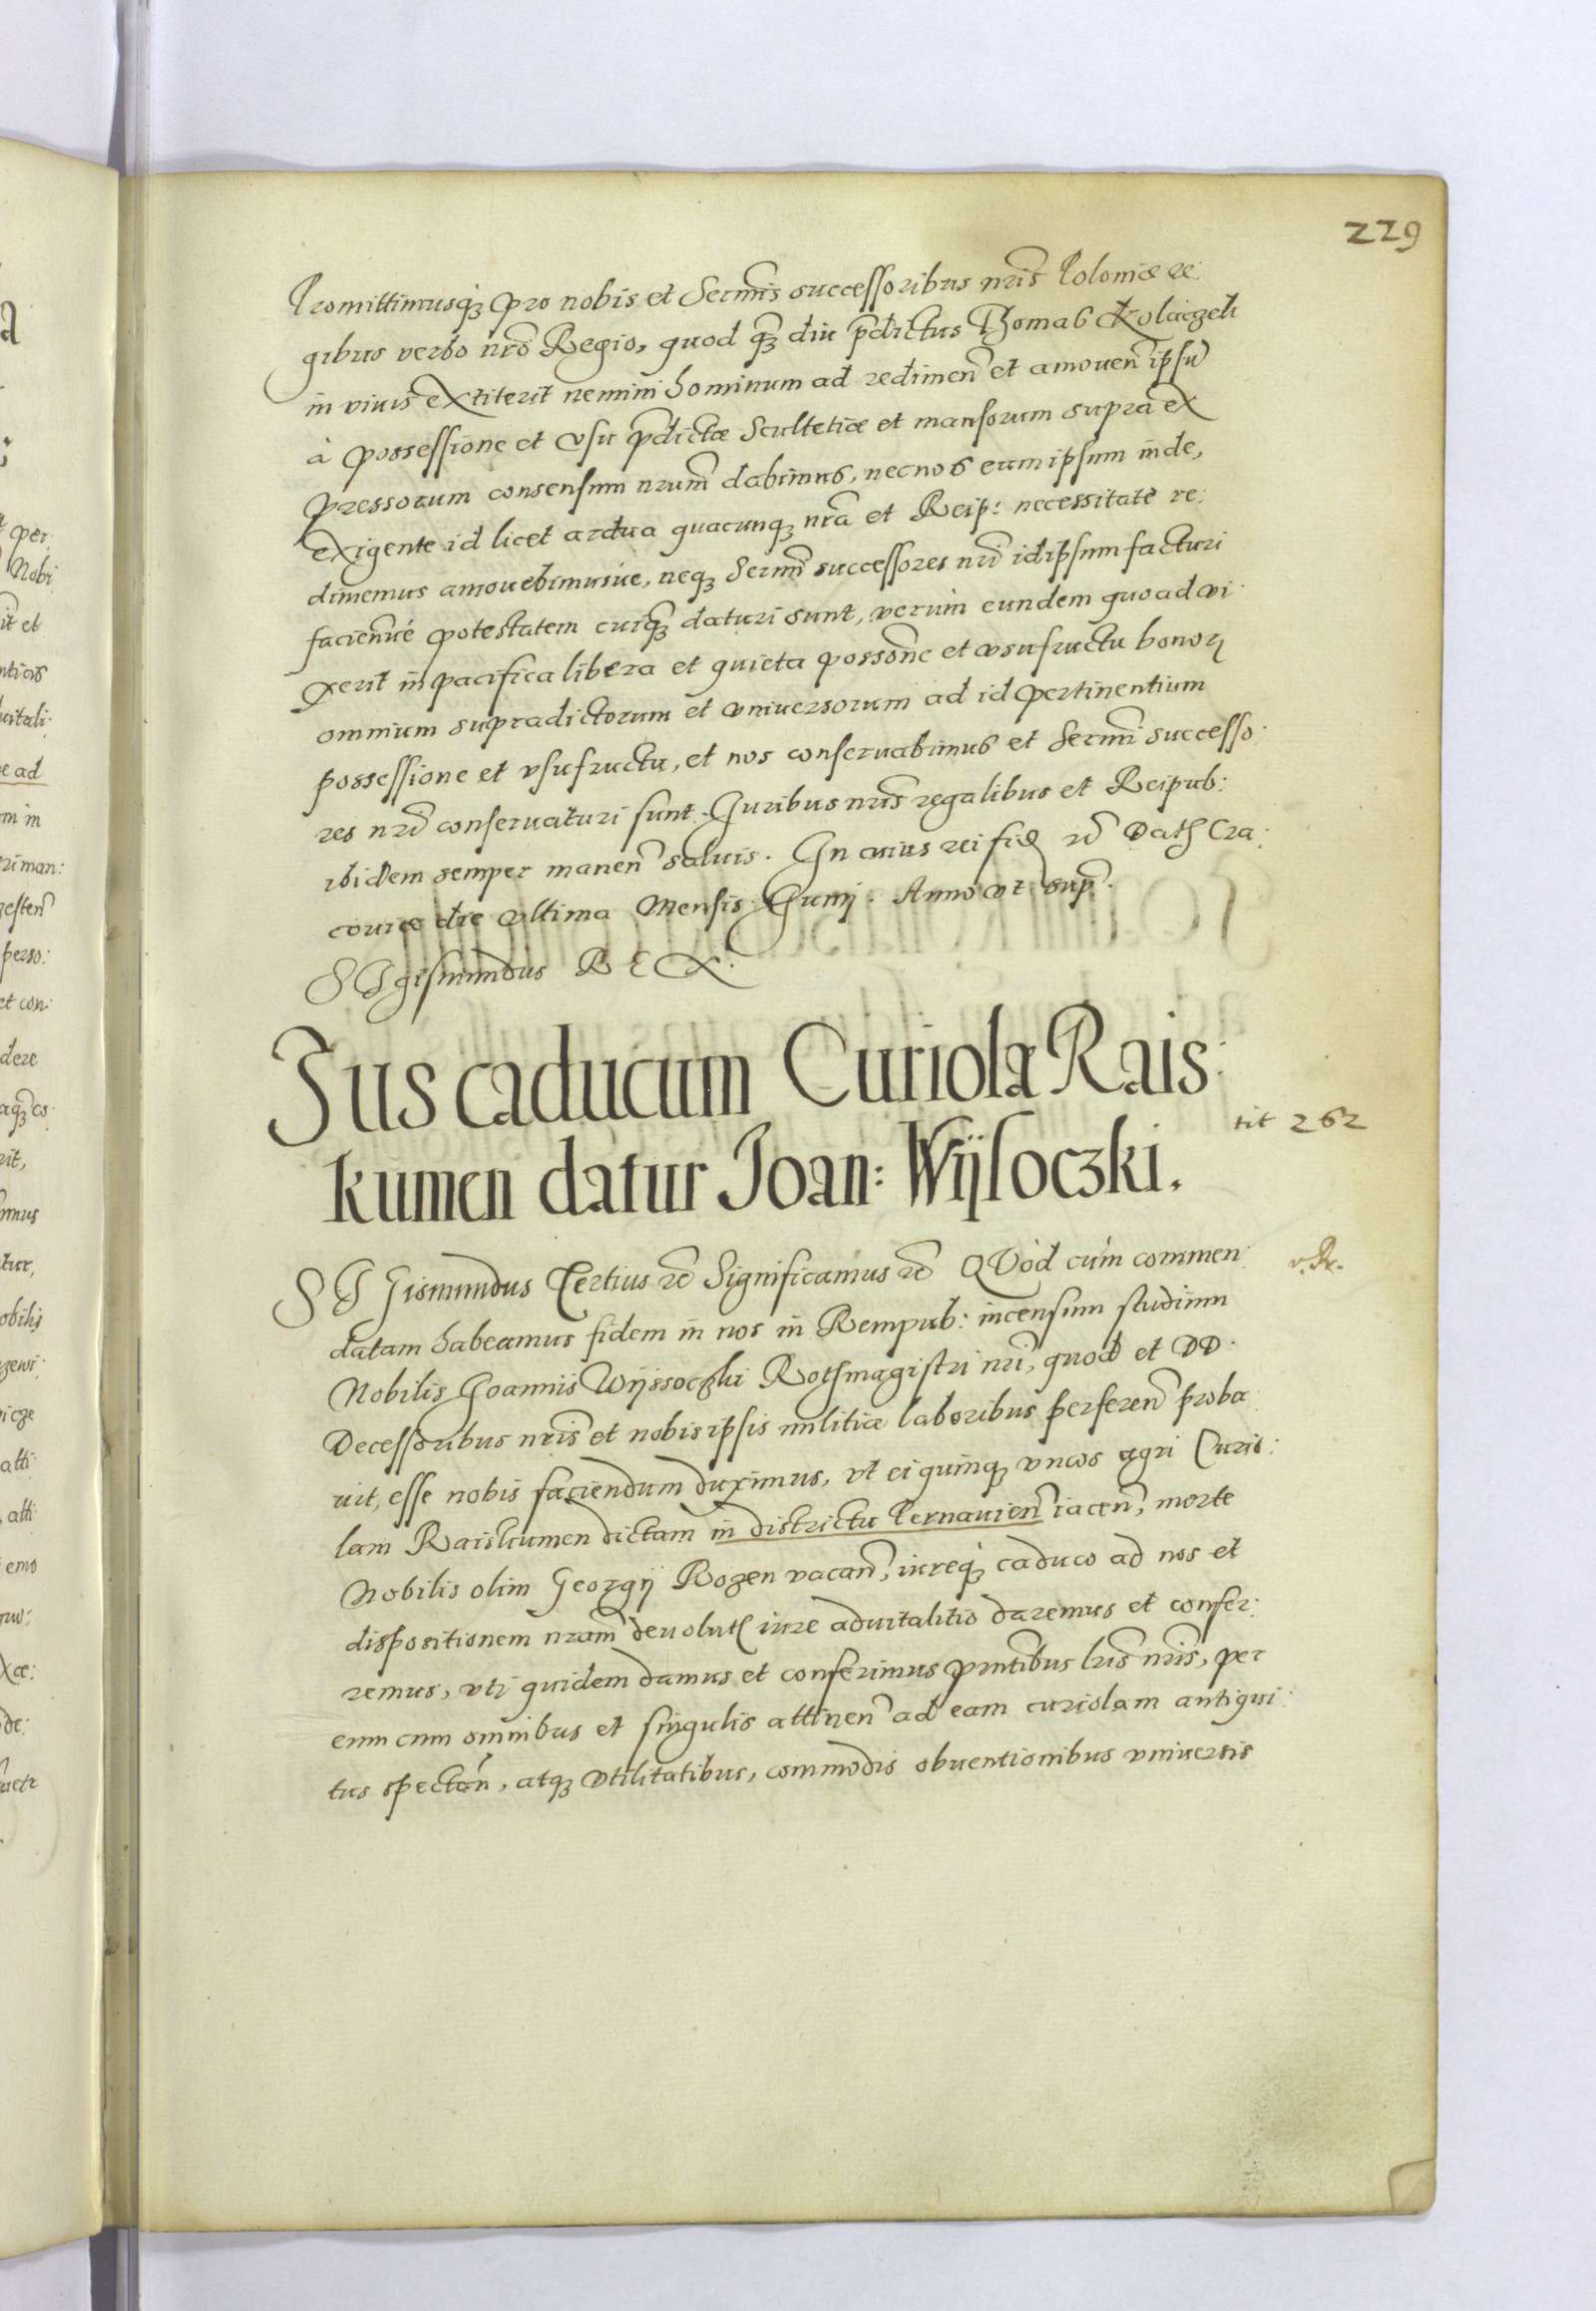 229
Promittimusq́ꝫ pro nobis et Sermis successoribus nris Poloniæ re:
gibus verbo nro Regio, quod qꝫ diu pdictus Thomas Kolaczek
in viuis extiterit nemini hominum ad redimen et amouen ipsu
à possessione et vsu pdictæ Scultetiæ et mansorum supra ex
pressorum consensum nrum dabimus, nec nos eum ipsum inde,
exigente id licet ardua quacunqꝫ nra et Reip: necessitate re:
dimemus amouebimusue, neqꝫ Sermi successores nri idipsum facturi
faciendiue potestatem cuiqꝫ daturi sunt, verum eundem quoad vi:
xerit in pacifica libera et quieta possone et vsufructu bonorꝝ
omnium supradictorum et vniuersorum ad id pertinentium
possessione et vsufructu, et nos conseruabimus et Sermi successo:
res nri conseruaturi sunt. Juribus nris regalibus et Reipub:
ibidem semper manen saluis. In cuius rei fid rc Datꝭ Cra:
couiæ die vltima Mensis Junij. Anno vt sup.
SIgismundus REX.
Jus caducum Curiolæ Rais:
kumen datur Joan: Wÿsoczki.
tit 262
SIGismundus Tertius rc Significamus rc QVod cùm commen:
datam habeamus fidem in nos in Rempub: incensum studium
Nobilis Joannis Wÿssoczki Rothmagistri nri, quod et DD.
Decessoribus nris et nobis ipsis militiæ laboribus perferen proba
uit, esse nobis faciendum duximus, vt ei quinqꝫ vncos agri Curio:
lam Raiskumen dictam in districtu Pernauien iacen, morte
Nobilis olim Georgij Rozen vacan, iureq́ꝫ caduco ad nos et
dispositionem nram deuolutꝭ iure aduitalitio daremus et confer:
remus, vti quidem damus et conferimus pntibus lris nris, per
eum cum omnibus et singulis attinen ad eam curiolam antiqui:
tus spectan, atqꝫ vtilitatibus, commodis obuentionibus vniuersis